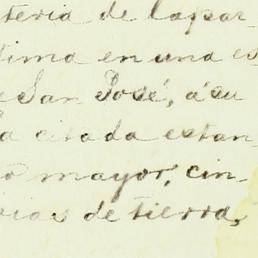 teria de la par-
tima en una es
e San José, á su
a citada estan-
o mayor, cin-
rias de tierra,